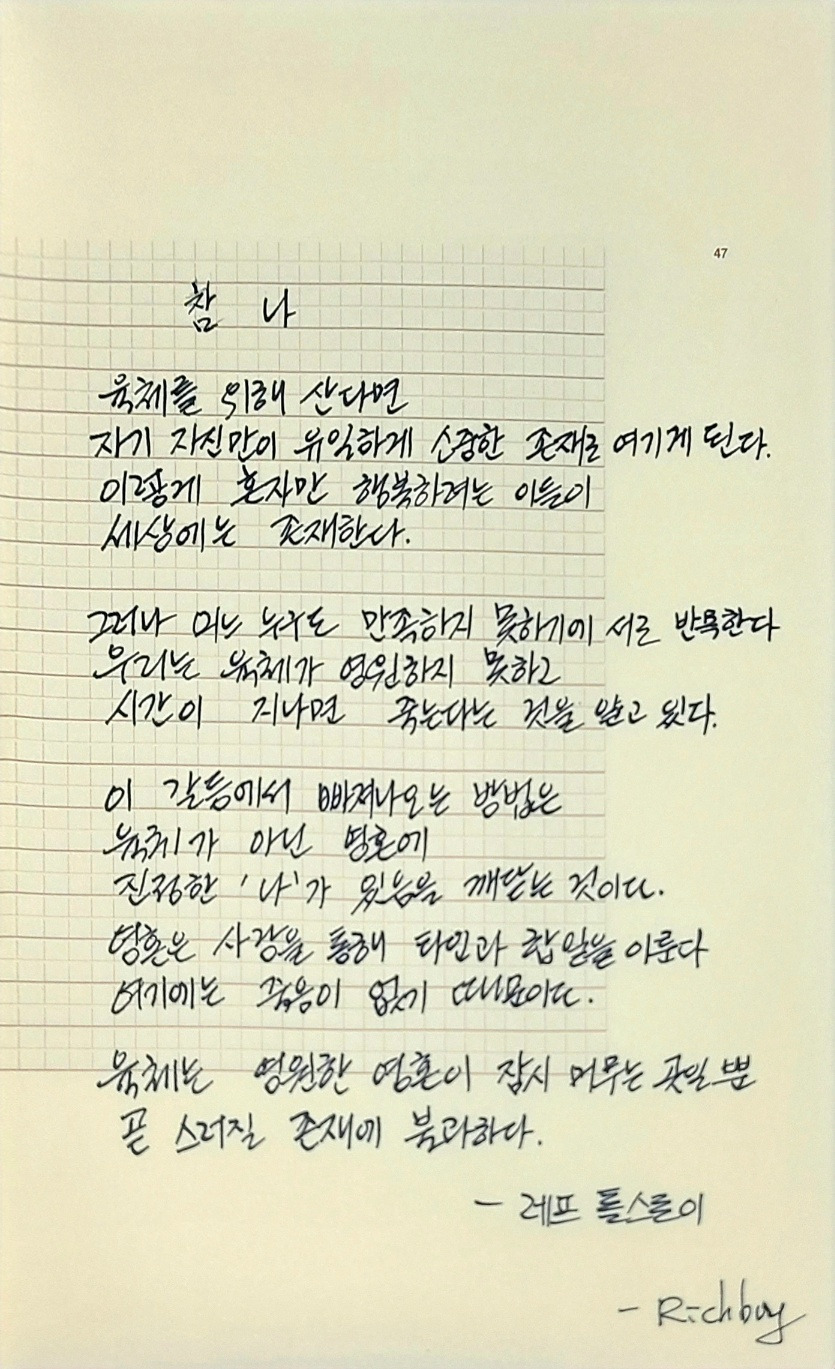 47
참 나
육체를 위해 산다면
자기 자신만이 유일하게 소중한 존재로 여기게 된다.
이렇게 혼자만 행복하려는 이들이
세상에는 존재한다.
그러나 어느 누구도 만족하지 못하기에 서로 반목한다
우리는 육체가 영원하지 못하고
시간이 지나면 죽는다는 것을 알고 있다.
이 갈등에서 빠져나오는 방법은
육체가 아닌 영혼에
진정한 '나'가 있음을 깨닫는 것이다.
영혼은 사랑을 통해 타인과 합일을 이룬다
여기에는 죽음이 없기 때문이다.
육체는 영원한 영혼이 잠시 머무는 곳일 뿐
곧 스러질 존재에 불과하다.
- 레프 톨스토이
- Richboy